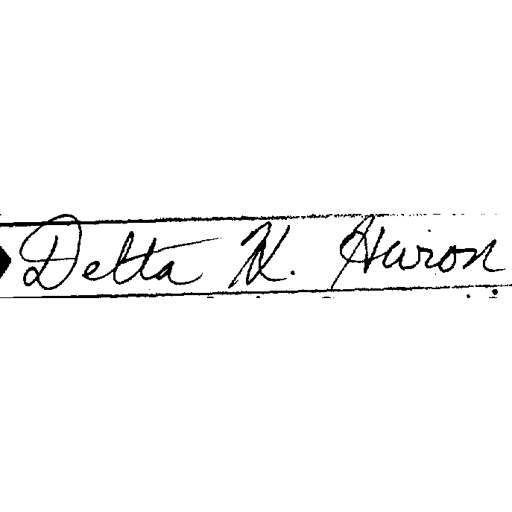 Delta H. Huron